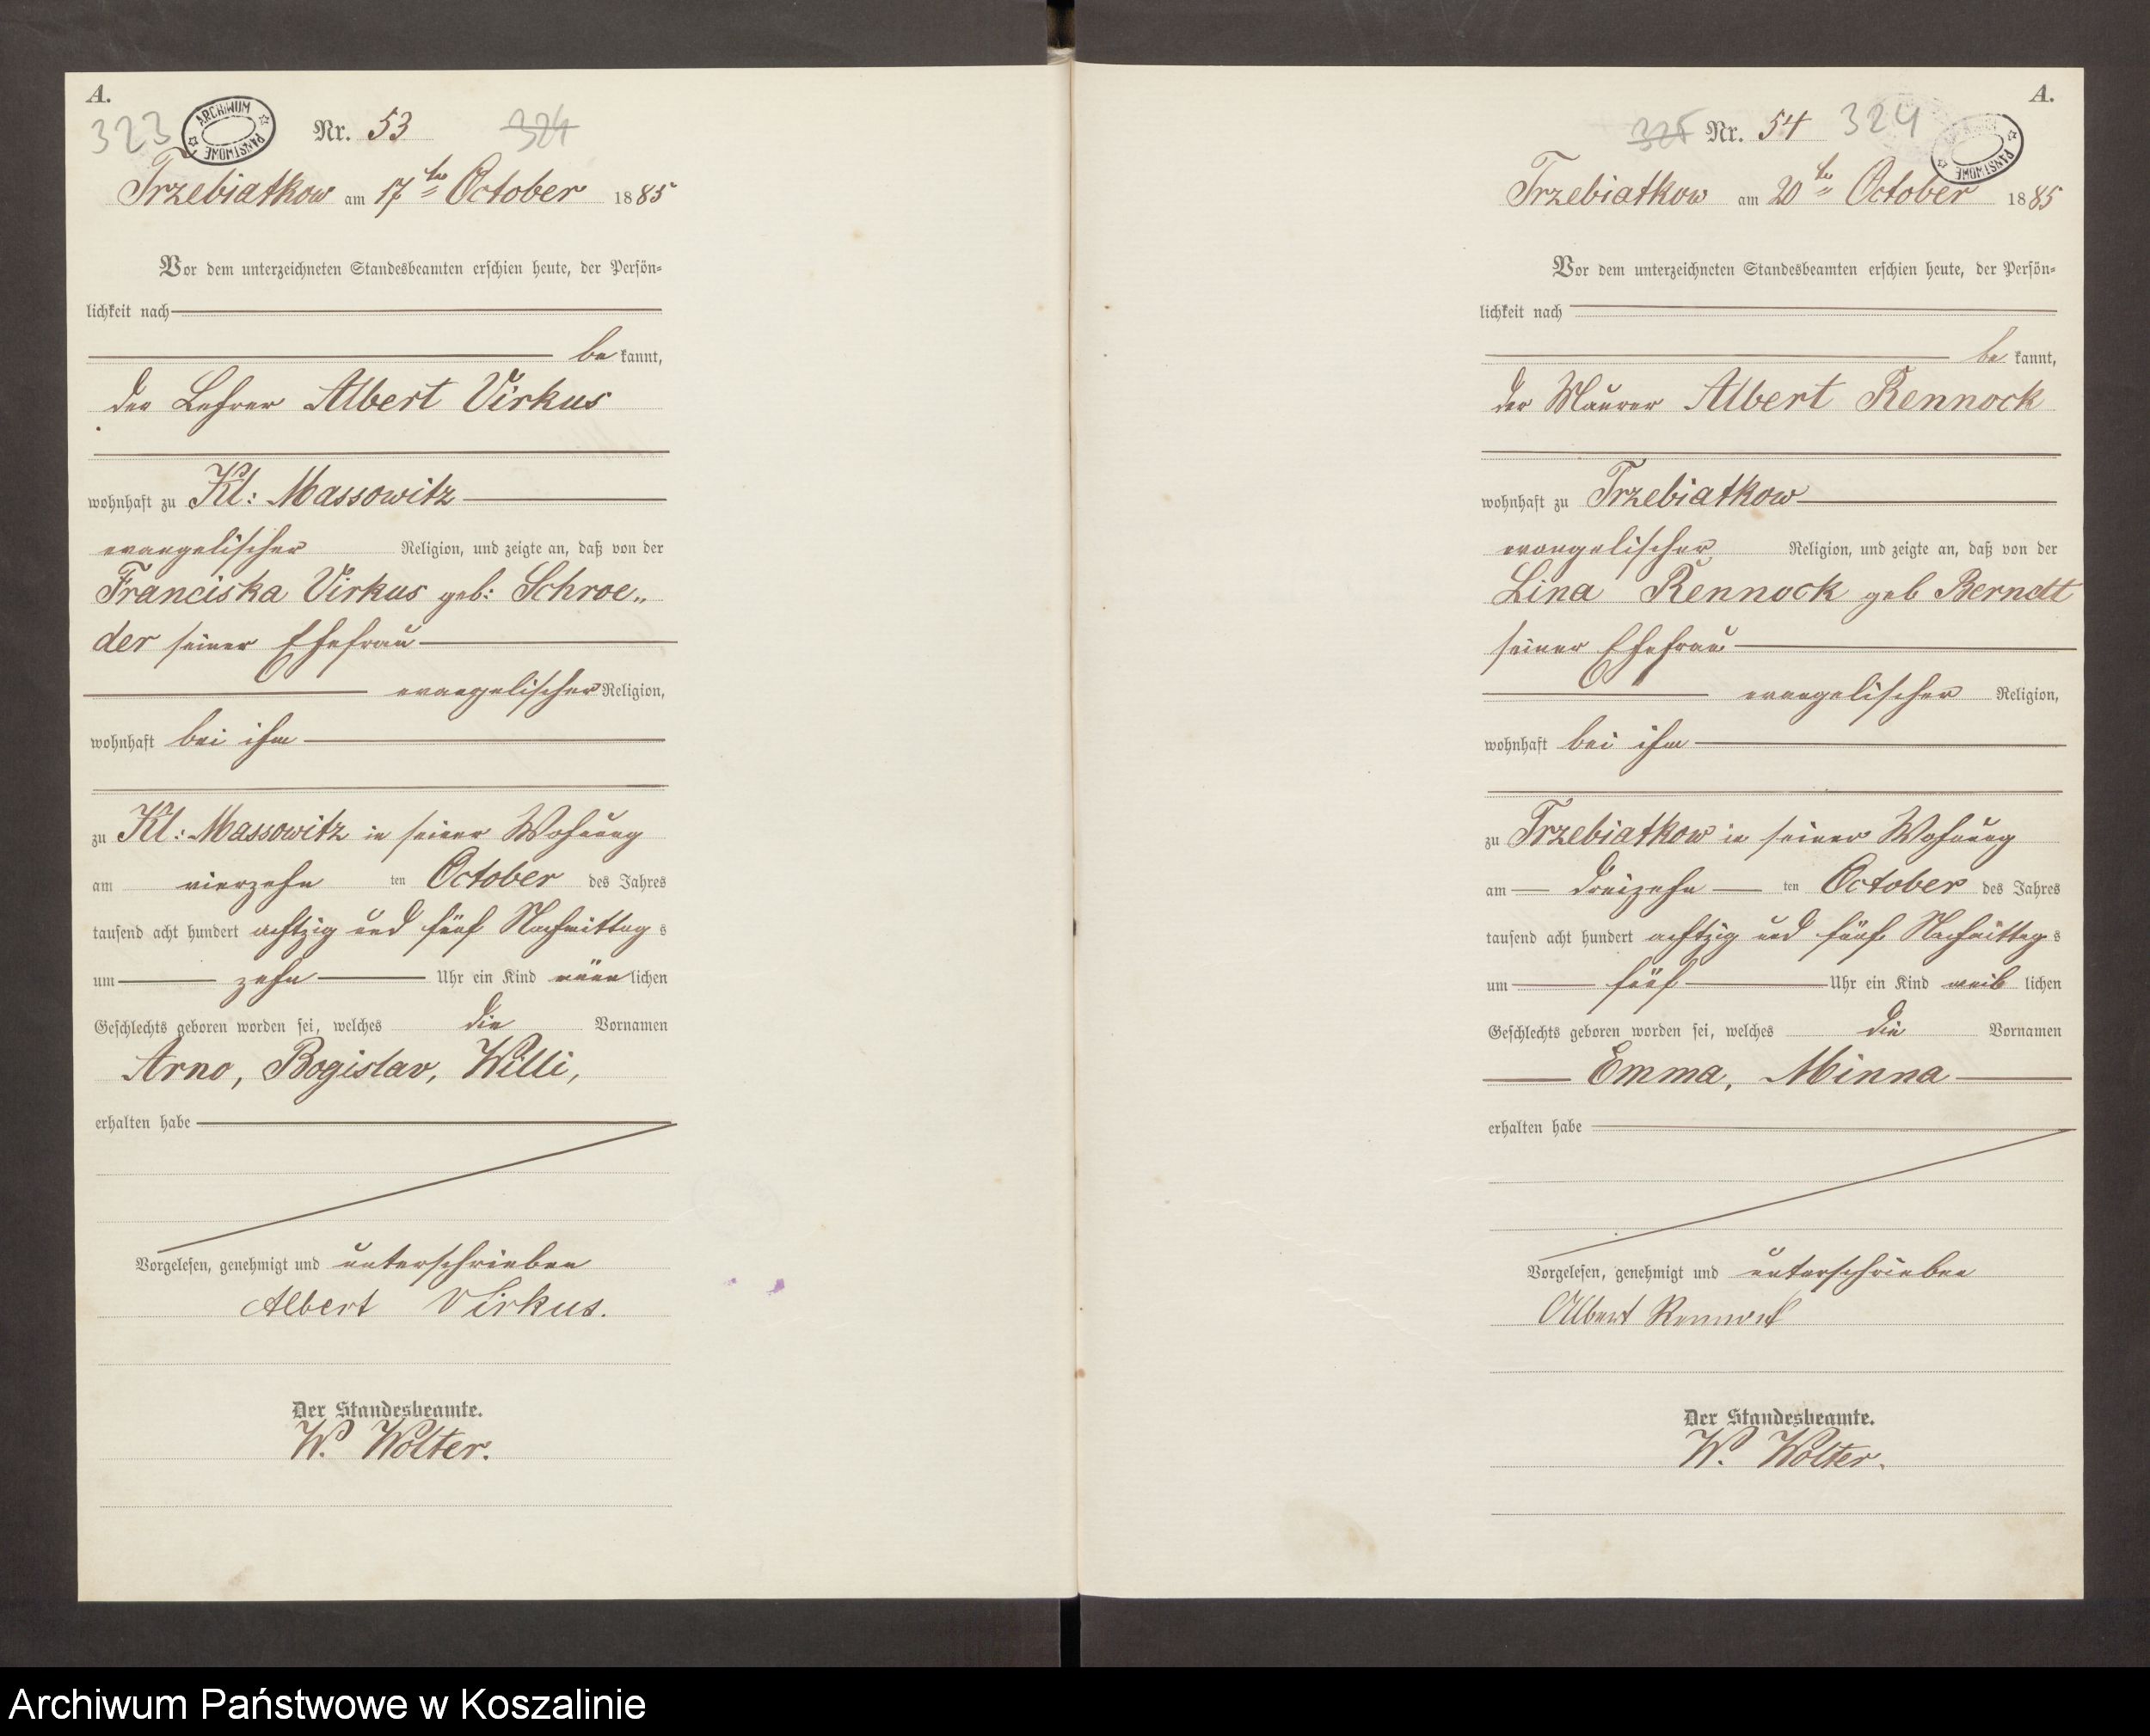 A.
323
ARCHIWUM PAŃSTWOWE
Nr. 53
324
Trzebiatkow am 17ten October 1885
Vor dem unterzeichneten Standesbeamten erschien heute, der Persön-
lichkeit nach
be kannt,
der Lehrer Albert Virkus
wohnhaft zu Kl: Massowitz
evangelischer Religion, und zeigte an, daß von der
Franciska Virkus geb: Schroe„
der seiner Ehefrau
evangelischer Religion,
wohnhaft bei ihm
zu Kl: Massowitz in seiner Wohnung
am vierzehn ten October des Jahres
tausend acht hundert achtzig und fünf Nachmittag s
um zehn Uhr ein Kind männ lichen
Geschlechts geboren worden sei, welches die Vornamen
Arno, Bogislav, Willi,
erhalten habe
Vorgelesen, genehmigt und unterschrieben
Albert Virkus.
Der Standesbeamte.
W. Wolter.
A.
325 Nr. 54 324
PAŃSTWOWE
Trzebiatkow am 20ten October 1885
Vor dem unterzeichneten Standesbeamten erschien heute, der Persön-
lichkeit nach
be kannt,
der Maurer Albert Rennock
wohnhaft zu Trzebiatkow
evangelischer Religion, und zeigte an, daß von der
Lina Rennock geb Berndtt
seiner Ehefrau
evangelischer Religion,
wohnhaft bei ihm
zu Trzebiatkow in seiner Wohnung
am dreizehn ten October des Jahres
tausend acht hundert achtzig und fünf Nachmittag s
um fünf Uhr ein Kind weib lichen
Geschlechts geboren worden sei, welches die Vornamen
Emma, Minna
erhalten habe
Vorgelesen, genehmigt und unterschrieben
Albert Rennock
Der Standesbeamte.
W. Wolter.
Archiwum Państwowe w Koszalinie